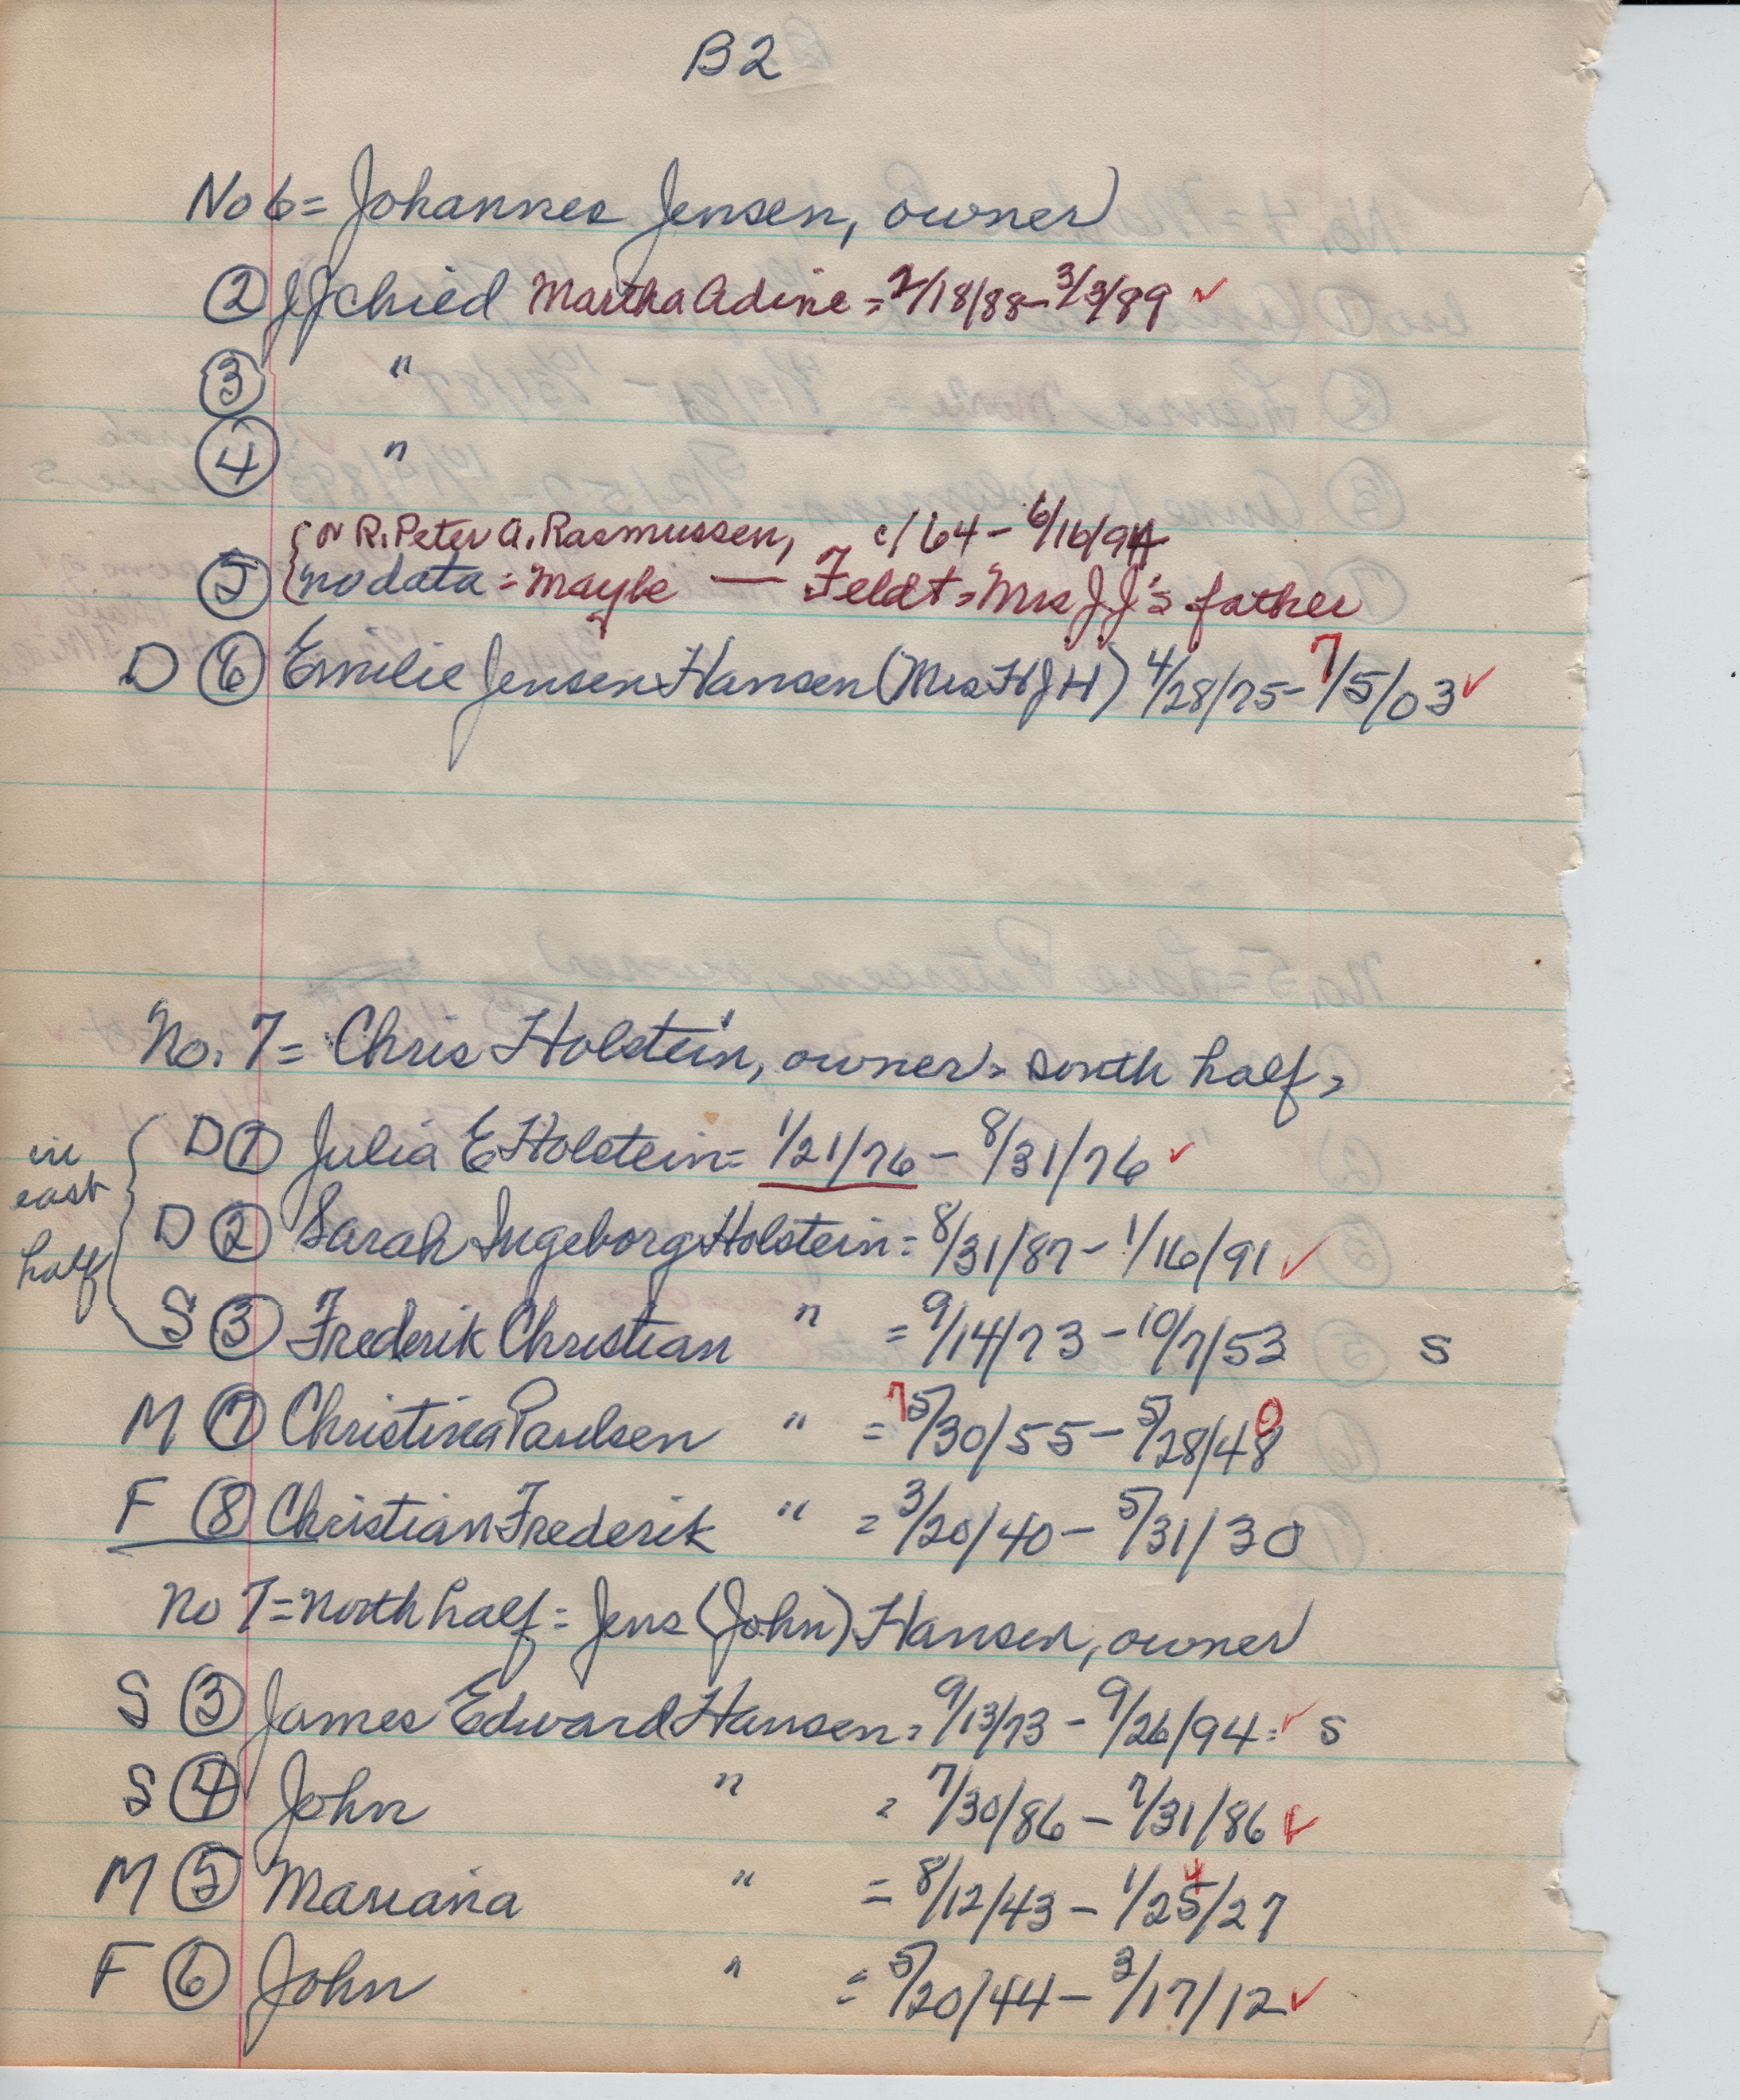 B2
No 6 = Johannes Jensen, owner
② JJ child Martha Adine = 2/18/88 - 3/3/89 ✓
③ "
④ "
or R. Peter A. Rasmussen, c/64 - 6/16/94
⑤ no data = maybe — Feldt = Mrs JJ's father
D ⑥ Emilie Jensen Hansen (Mrs H J H) 4/28/75 - 7/5/03 ✓
No. 7 = Chris Holstein, owner = south half =
in east half
D ① Julia E Holstein = 1/21/76 - 8/31/76 ✓
D ② Sarah Ingeborg Holstein = 8/31/87 - 1/16/91 ✓
S ③ Frederik Christian " = 9/14/73 - 10/7/53 S
M ⑦ Christina Paulsen " = 7 5/30/55 - 5/28/48 0
F ⑧ Christian Frederik " = 3/20/40 - 5/31/30
No 7 = North half = Jens (John) Hansen, owner
S ③ James Edward Hansen = 9/13/73 - 9/26/94 = ✓ S
S ④ John " = 7/30/86 - 7/31/86 ✓
M ⑤ Mariana " = 8/12/43 - 1/25/27 4
F ⑥ John " = 5/20/44 - 3/17/12 ✓